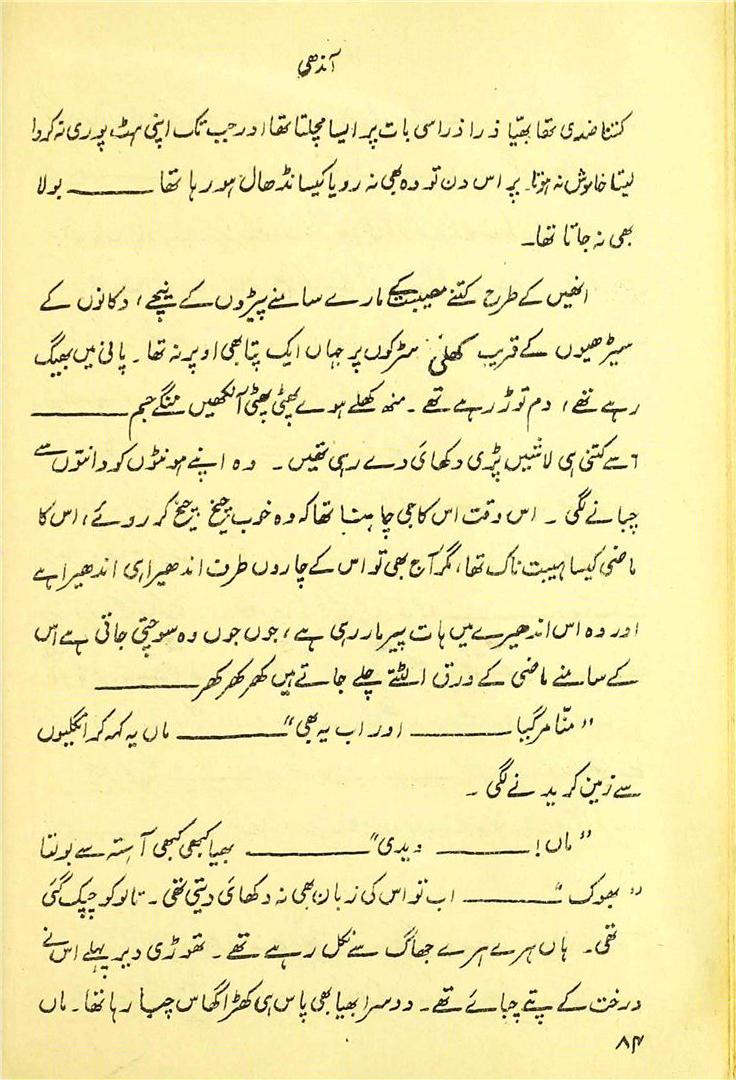 آندھی
کتنا ضدی تھا بھیّا ذرا ذرا سی بات پر ایسا مچلتا تھا اور جب تک اپنی ہٹ پوری نہ کروا
لیتا خاموش نہ ہوتا۔ پر اس دن تو وہ بھی نہ رویا کیسا نڈھال ہو رہا تھا ——— بولا
بھی نہ جاتا تھا۔
انھیں کے طرح کتنے مصیبت کے مارے سامنے پیڑوں کے نیچے، دکانوں کے
سیڑھیوں کے قریب کھلی سڑکوں پر جہاں ایک پتا بھی اوپر نہ تھا۔ پانی میں بھیگ
رہے تھے، دم توڑ رہے تھے۔ منھ کھلے ہوے پھٹی پھٹی آنکھیں ننگے جسم ———
اسے کتنی ہی لاشیں پڑی دکھائی دے رہی تھیں۔ وہ اپنے ہونٹوں کو دانتوں سے
چبانے لگی۔ اس وقت اس کا جی چاہتا تھا کہ وہ خوب چیخ چیخ کر روئے، اس کا
ماضی کیسا ہیبت ناک تھا، مگر آج بھی تو اس کے چاروں طرف اندھیرا ہی اندھیرا ہے
اور وہ اس اندھیرے میں ہات پیر مار رہی ہے، جوں جوں وہ سوچتی جاتی ہے اس
کے سامنے ماضی کے ورق الٹتے چلے جاتے ہیں کھر کھر کھر ———
"منّا مر گیا ——— اور اب یہ بھی" ——— ماں یہ کہہ کر انگلیوں
سے زمین کریدنے لگی۔
"ماں! ——— ویدی" ——— بھیا کبھی کبھی آہستہ سے بولتا
"بھوک" ——— اب تو اس کی زبان بھی نہ دکھائی دیتی تھی۔ تالو کو چپک گئی
تھی۔ ہاں ہرے ہرے جھاگ سے نکل رہے تھے۔ تھوڑی دیر پہلے اس نے
درخت کے پتے چبائے تھے۔ دوسرا بھیا بھی پاس ہی کھڑا گھاس چبا رہا تھا۔ ماں
۸۴